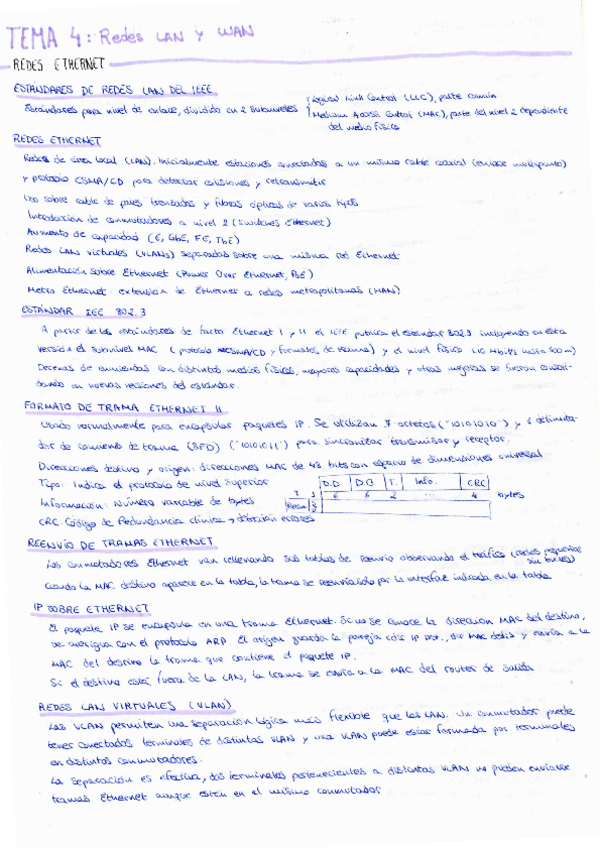 TEMA 4: Redes LAN y WAN
REDES ETHERNET
ESTÁNDARES DE REDES LAN DEL IEEE
Estándares para nivel de enlace, dividido en 2 subniveles
Logical Link Control (LLC), parte común
Medium Access Control (MAC), parte del nivel 2 dependiente
del medio físico
REDES ETHERNET
Redes de área local (LAN). Inicialmente estaciones conectadas a un mismo cable coaxial (enlace multipunto)
y protocolo CSMA/CD para detectar colisiones y retransmitir
Uso sobre cable de pares trenzados y fibras ópticas de varios tipos
Introducción de conmutadores a nivel 2 (switches Ethernet)
Aumento de capacidad (E, GbE, FE, TbE)
Redes LAN virtuales (VLANs) separadas sobre una misma red Ethernet
Alimentación sobre Ethernet (Power Over Ethernet, PoE)
Metro Ethernet: extensión de Ethernet a redes metropolitanas (MAN)
ESTÁNDAR IEE 802.3
A partir de los estándares de facto Ethernet I y II el IEEE publica el estándar 802.3 incluyendo en esta
versión el subnivel MAC (protocolo CSMA/CD y formatos de trama) y el nivel físico (10 Mbit/s hasta 500 m)
Decenas de enmiendas con distintos medios físicos, mayores capacidades y otras mejoras se fueron
en nuevas versiones del estándar.
FORMATO DE TRAMA ETHERNET II
Usado normalmente para encapsular paquetes IP. Se utilizan 7 octetos ("10101010") y 1 delimita-
dor de comienzo de trama (SFD) ("10101011") para sincronizar transmisor y receptor.
Direcciones destino y origen: direcciones MAC de 48 bits con espacio de dimensiones universal
Tipo: Indica el protocolo de nivel superior
Información: Número variable de bytes
CRC: Código de Redundancia clínica → detección errores
7
D.D D.O T. Info. CRC
6 6 2 4 bytes
REENVÍO DE TRAMAS ETHERNET
Los conmutadores Ethernet van rellenando sus tablas de reenvío observando el tráfico (redes pequeñas
sin bucles)
Cuando la MAC destino aparece en la tabla, la trama se reenvía solo por la interfaz indicada en la tabla
IP SOBRE ETHERNET
El paquete IP se encapsula en una trama Ethernet. Si no se conoce la dirección MAC del destino,
se averigua con el protocolo ARP. El origen guarda la pareja dir IP dest., dir MAC dest. y envía a la
MAC del destino la trama que contiene el paquete IP.
Si el destino está fuera de la LAN, la trama se envía a la MAC del router de salida
REDES LAN VIRTUALES (VLAN)
Las VLAN permiten una separación lógica más flexible que las LAN. Un conmutador puede
tener conectados terminales de distintas VLAN y una VLAN puede estar formada por terminales
en distintos conmutadores.
La separación es efectiva, dos terminales pertenecientes a distintas VLAN no pueden enviarse
tramas Ethernet aunque estén en el mismo conmutador